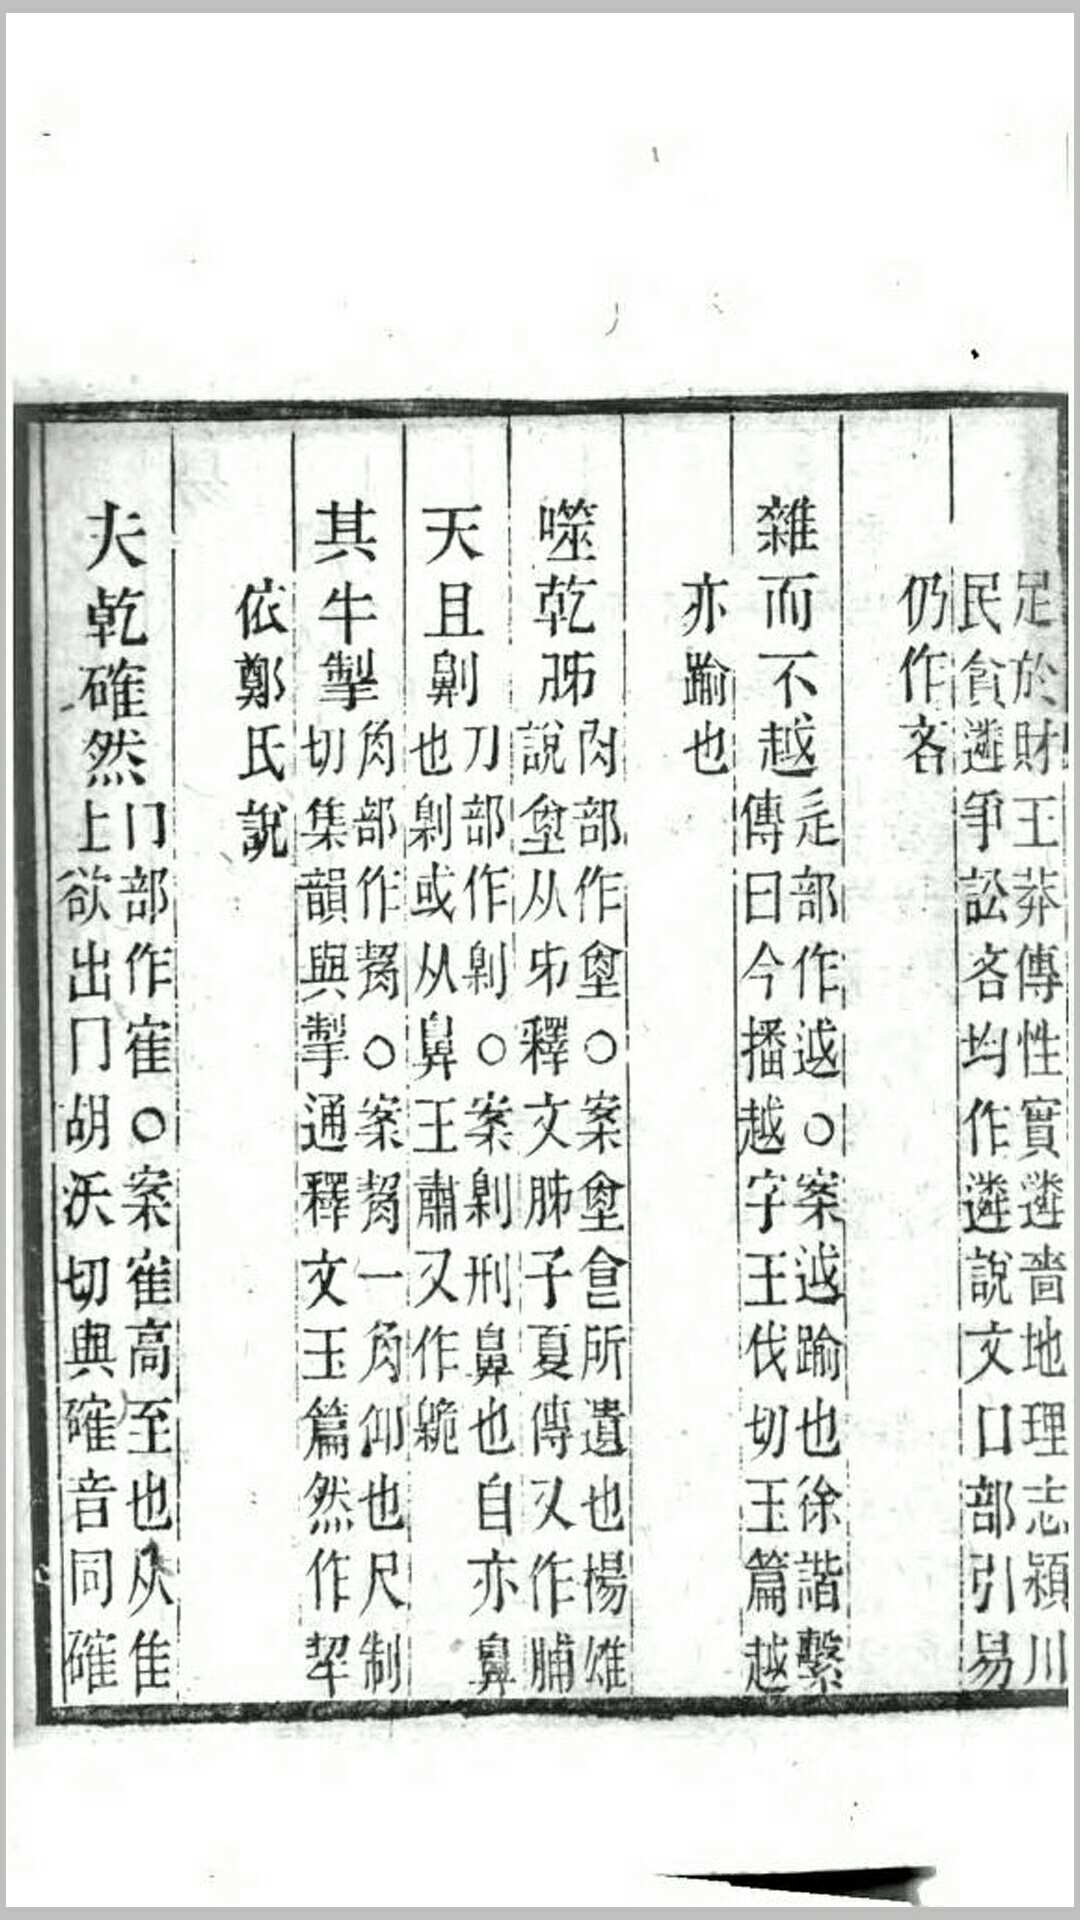 足於財王莽傳性實遴嗇地理志潁川
民貪遴爭訟吝均作遴說文口部引易
仍作吝
雜而不越
辵部作䟠○案䟠踰也徐諧繫
傳曰今播越字王伐切玉篇越
亦踰也
噬乾胏
肉部作㙽○案㙽食所遺也楊雄
說㙽从𠂔釋文胏子夏傳又作脯
天且劓
刀部作劓○案劓刑鼻也自亦鼻
也劓或从鼻王肅又作臲
其牛掣
角部作觢○案觢一角仰也尺制
切集韻與掣通釋文玉篇然作挈
依鄭氏說
夫乾確然
冂部作隺○案隺高至也从隹
上欲出冂胡沃切與確音同確